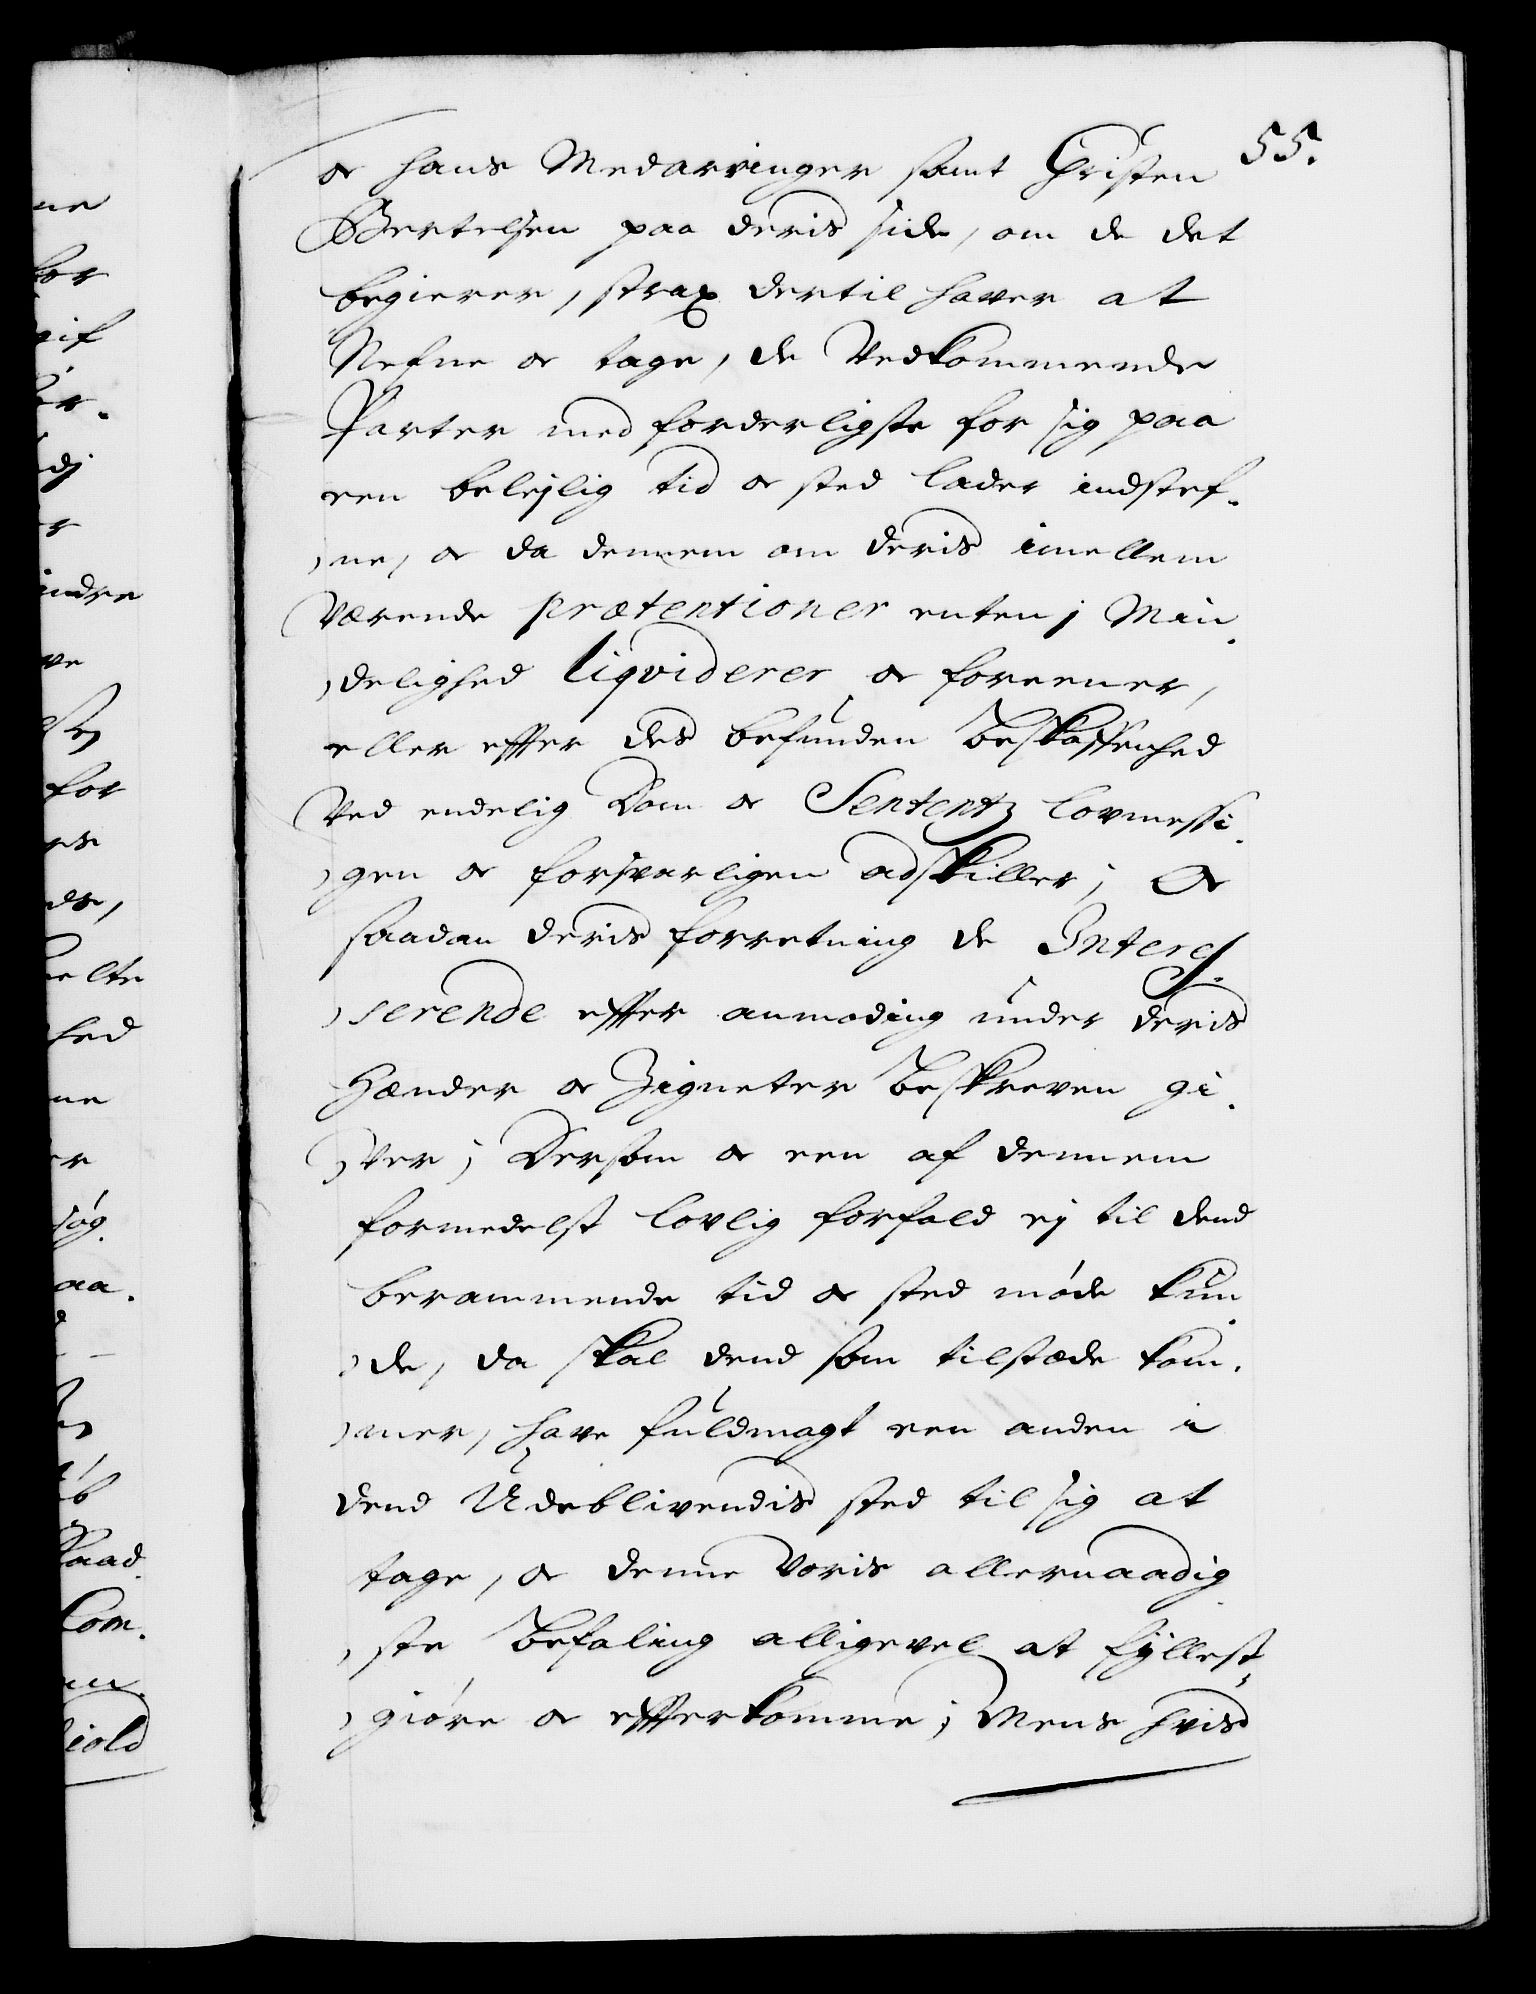 55.
og hans Medarvinger samt Christen
Bertelsen paa deris side, om de det
begierer, strax dertil haver at
Nefne og tage, de Vedkommende
Parter med forderligste for sig paa
een beleylig tid og sted lader indstef-
ne, og da dennem om deris imellem
værende prætentioner enten j Min-
delighed liqviderer og foreener,
eller effter des befunden Beskaffenhed
Ved endelig Dom og Sententz lovmessi-
gen og forsvarligen adskiller; Og
saadan deris forretning de Interes-
serende effter anmoding under deris
Hænder og Zigneter Beskreven gi-
ver; Dersom og een af dennem
formedelst lovlig forfald ej til dend
berammende tid og sted møde kun-
de, da skal dend som tilstæde kom-
mer, have fuldmagt een anden i
dend Udeblivendis sted til sig at
tage, og denne Voris allernaadig-
ste Befaling alligevel at fyllest-
giøre og effterkomme; Mens hvis